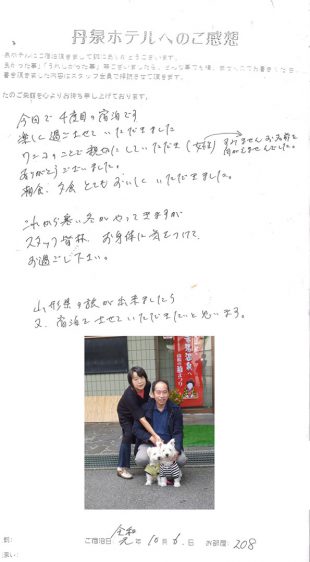 丹泉ホテルへのご感想
泉ホテルにご宿泊頂きまして誠にありがとうございます。
今回で4度目の宿泊です
楽しく過ごさせていただきました
ワンコのことで親切にしていただき
すみませんお名前を
ありがとうございました。
朝食、夕食とてもおいしくいただきました。
これから寒い冬がやってきますが
スタッフ皆様、お身体に気をつけて
お過ごし下さい。
山形県の旅が出来ましたら
又、宿泊させていただきたいと思います。
ご宿泊日 令和元年10月6日 お部屋 208